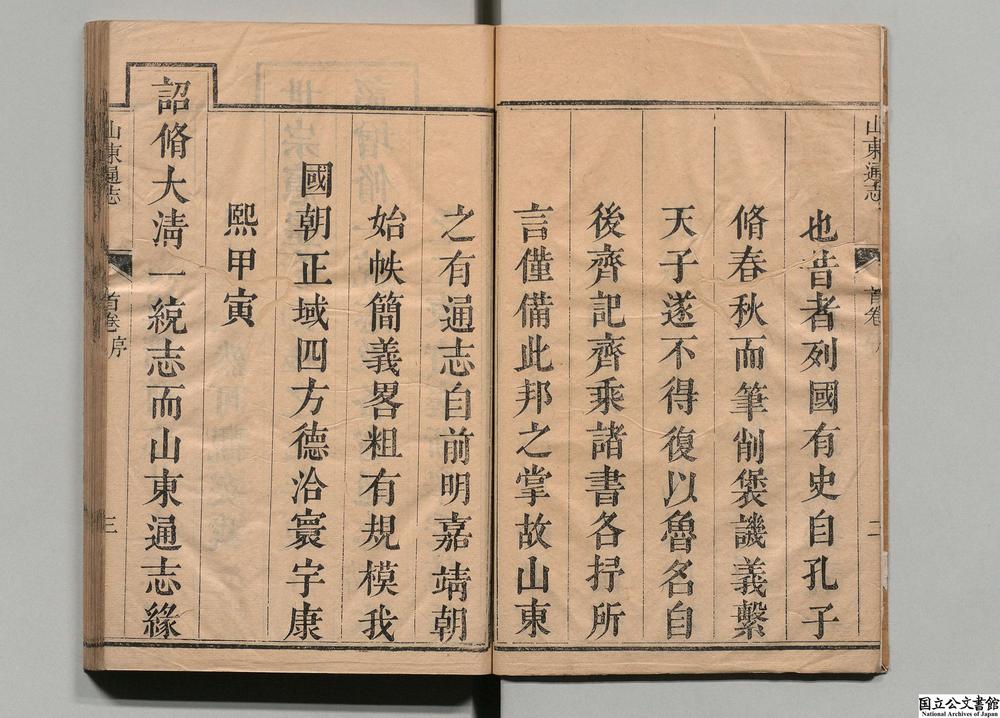 山東通志
首卷
二
也昔者列國有史自孔子
脩春秋而筆削褒譏義繫
天子遂不得復以魯名自
後齊記齊乘諸書各抒所
言僅備此邦之掌故山東
之有通志自前明嘉靖朝
始帙簡義畧粗有規模我
國朝正域四方德洽寰宇康
熙甲寅
詔脩大清一統志而山東通志緣
山東通志
首卷 序
三
国立公文書館
National Archives of Japan